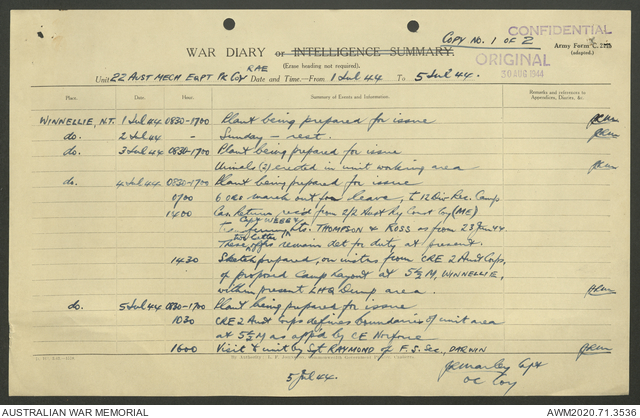 COPY NO. 1 OF 2
CONFIDENTIAL
WAR DIARY or INTELLIGENCE SUMMARY.
Army Form C. 2118
(adapted.)
ORIGINAL
30 AUG 1944
(Erase heading not required).
RAE
Unit 22 AUST MECH EQPT PK COY Date and Time.—From 1 Jul 44 To 5 Jul 44.
Place. Date. Hour. Summary of Events and Information. Remarks and references to Appendices, Diaries, &c.
WINNELLIE, N.T. 1 Jul 44 0830-1700 Plant being prepared for issue
do. 2 Jul 44 - Sunday - rest.
do. 3 Jul 44 0830-1700 Plant being prepared for issue
Urinals (2) erected in unit working area
do. 4 Jul 44 0830-1700 Plant being prepared for issue
0700 6 ORs march out for leave, to 12 Div Rec. Camp
1400 Cas. Return rec'd from 2/2 Aust Ry Const Coy (ME)
Capt WEBB &
Lts. THOMPSON & ROSS as from 23 Jun 44
These offrs remain det for duty at present.
1430 Sketch prepared, on instns from CRE 2 Aust Corps,
of proposed Camp layout at 5½ M, WINNELLIE,
within present LHQ Dump area.
do. 5 Jul 44 0830-1700 Plant being prepared for issue
1030 CRE 2 Aust Corps defines boundaries of unit area
at 5½ M as app'd by CE Norforce
1600 Visit to unit by Sgt RAYMOND of F.S. Sec., DARWIN
5 Jul 44.
Capt
OC Coy
AUSTRALIAN WAR MEMORIAL
AWM2020.71.3536